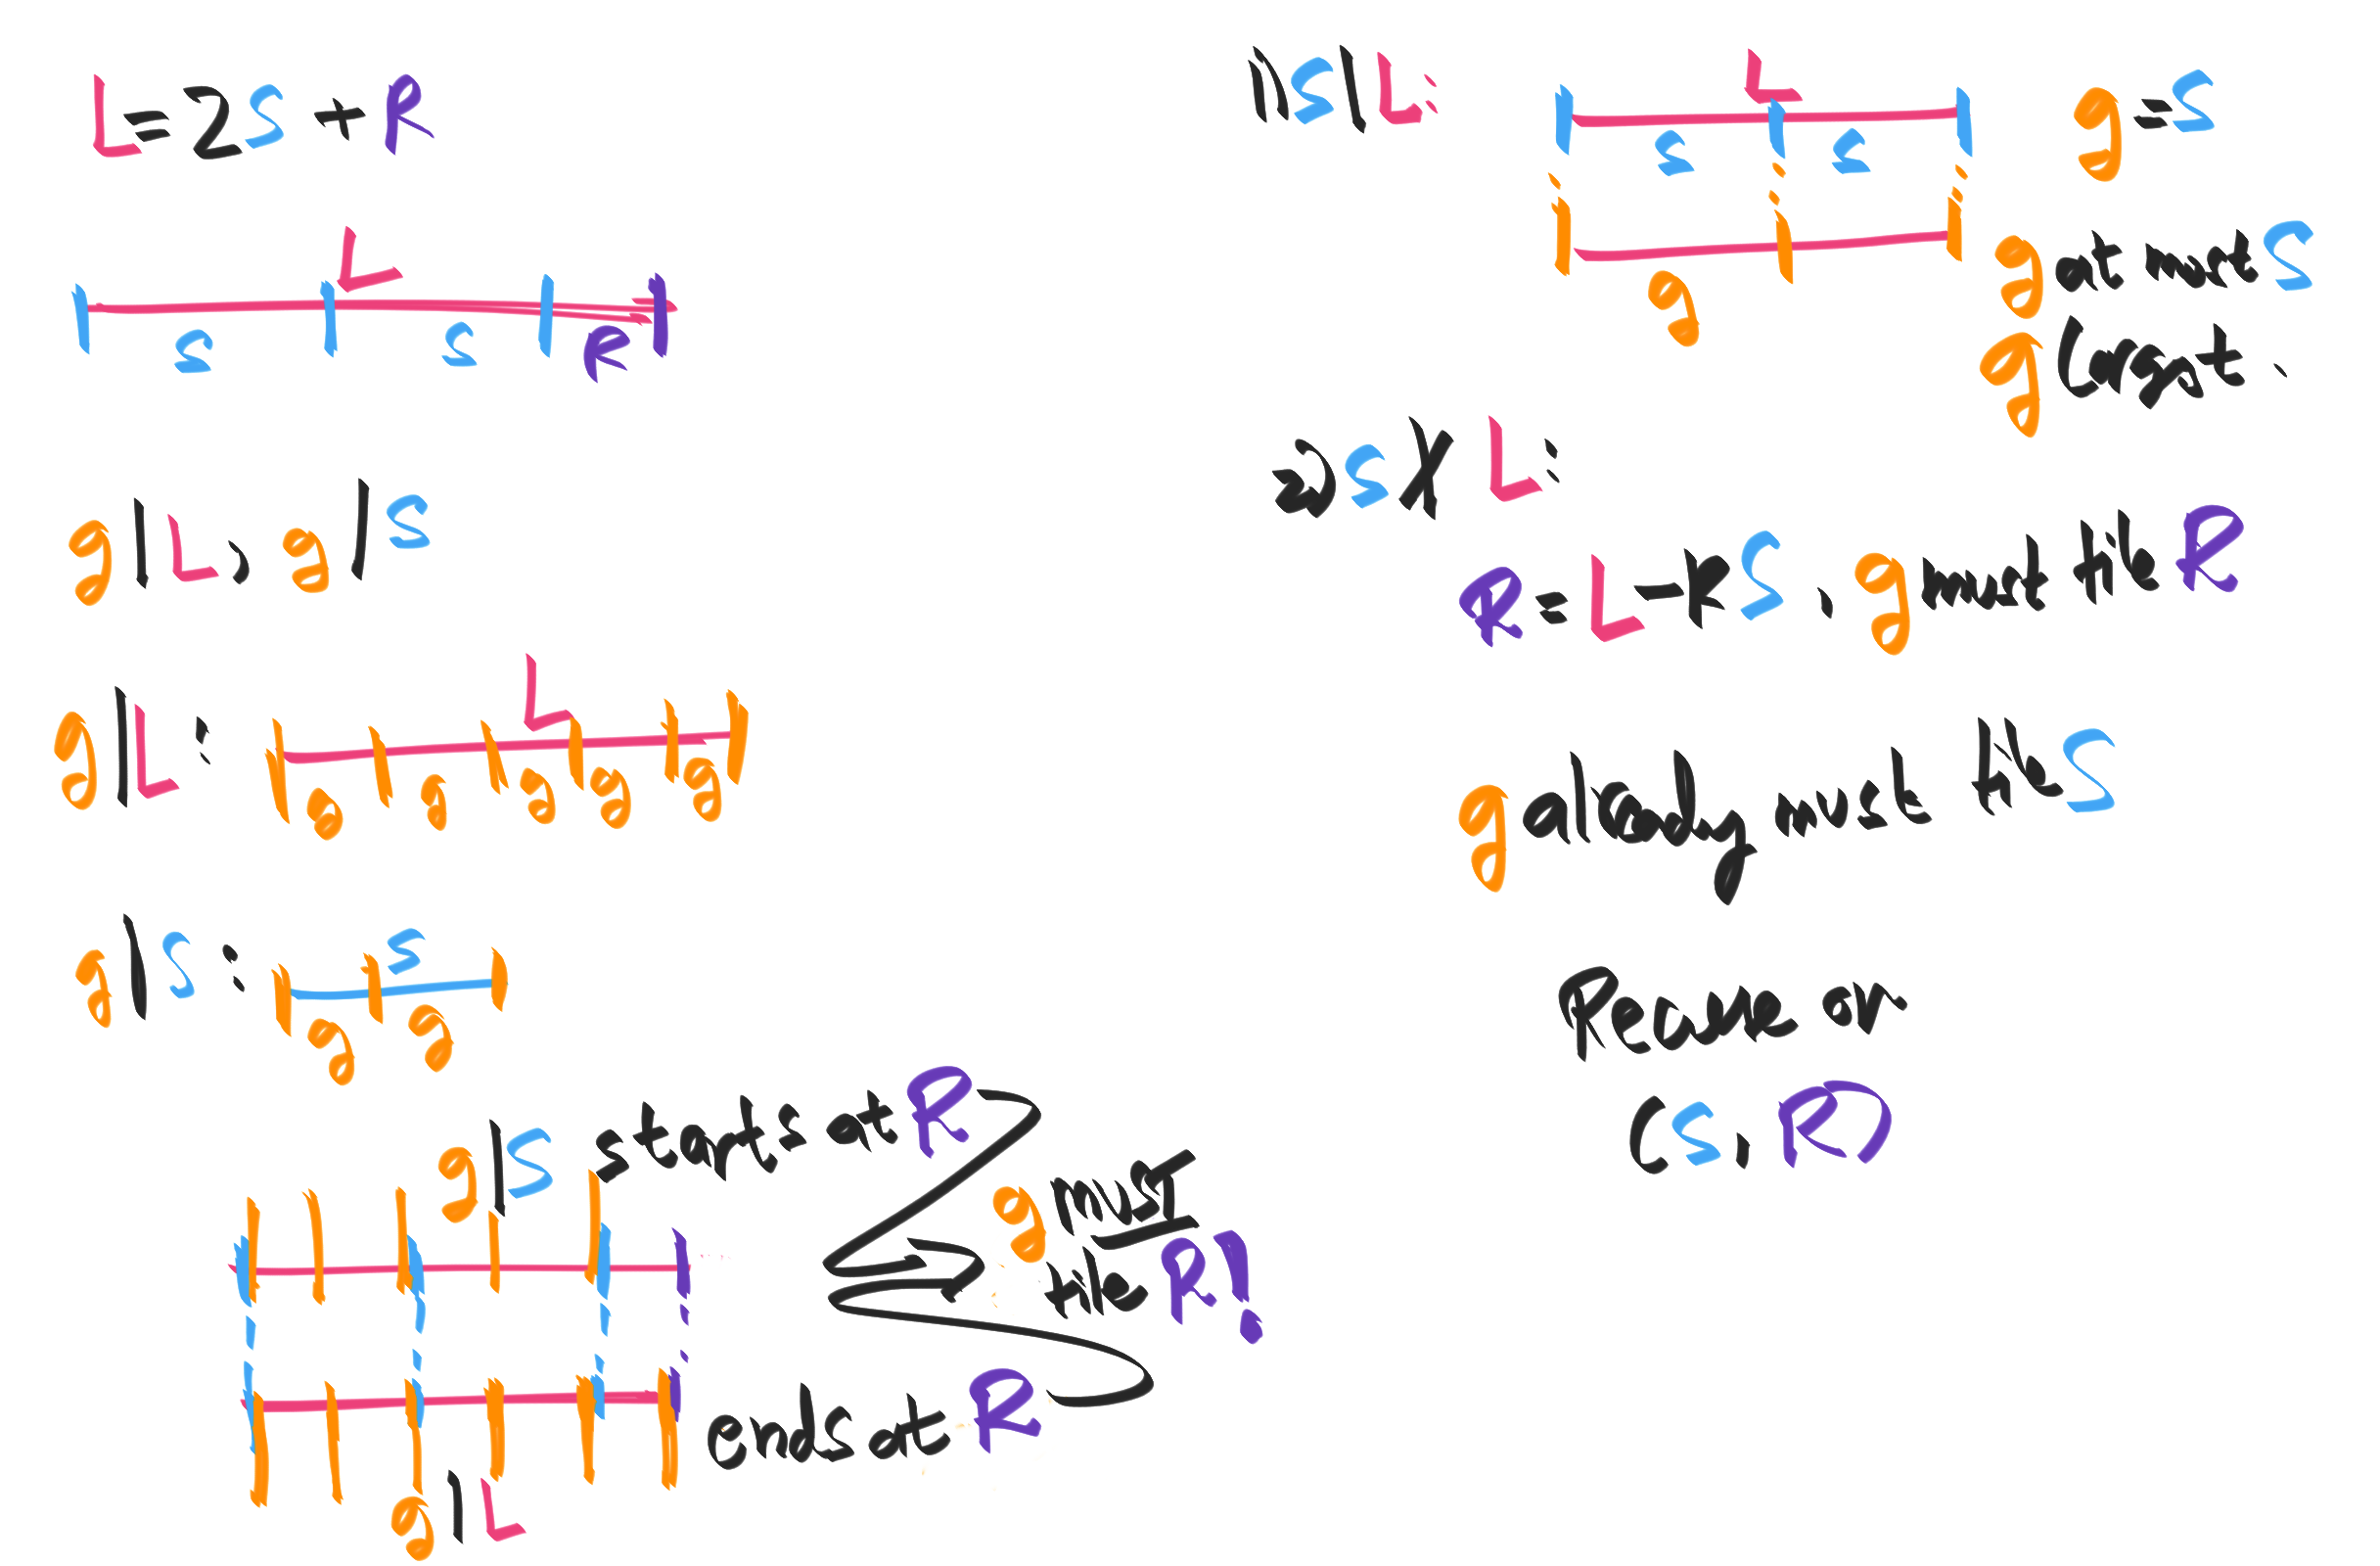 L=2S+R
L
S S R
g|L, g|S
g|L:
L
g g g g g
g|S:
S
g g
g|S starts at R
g must
tile R!
ends at R
g|L
1) S|L:
L
S S
g
g=S
g at most S
g largest.
2) S∤L:
R=L-kS, g must tile R
g already must tile S
Recurse on
(S, R)